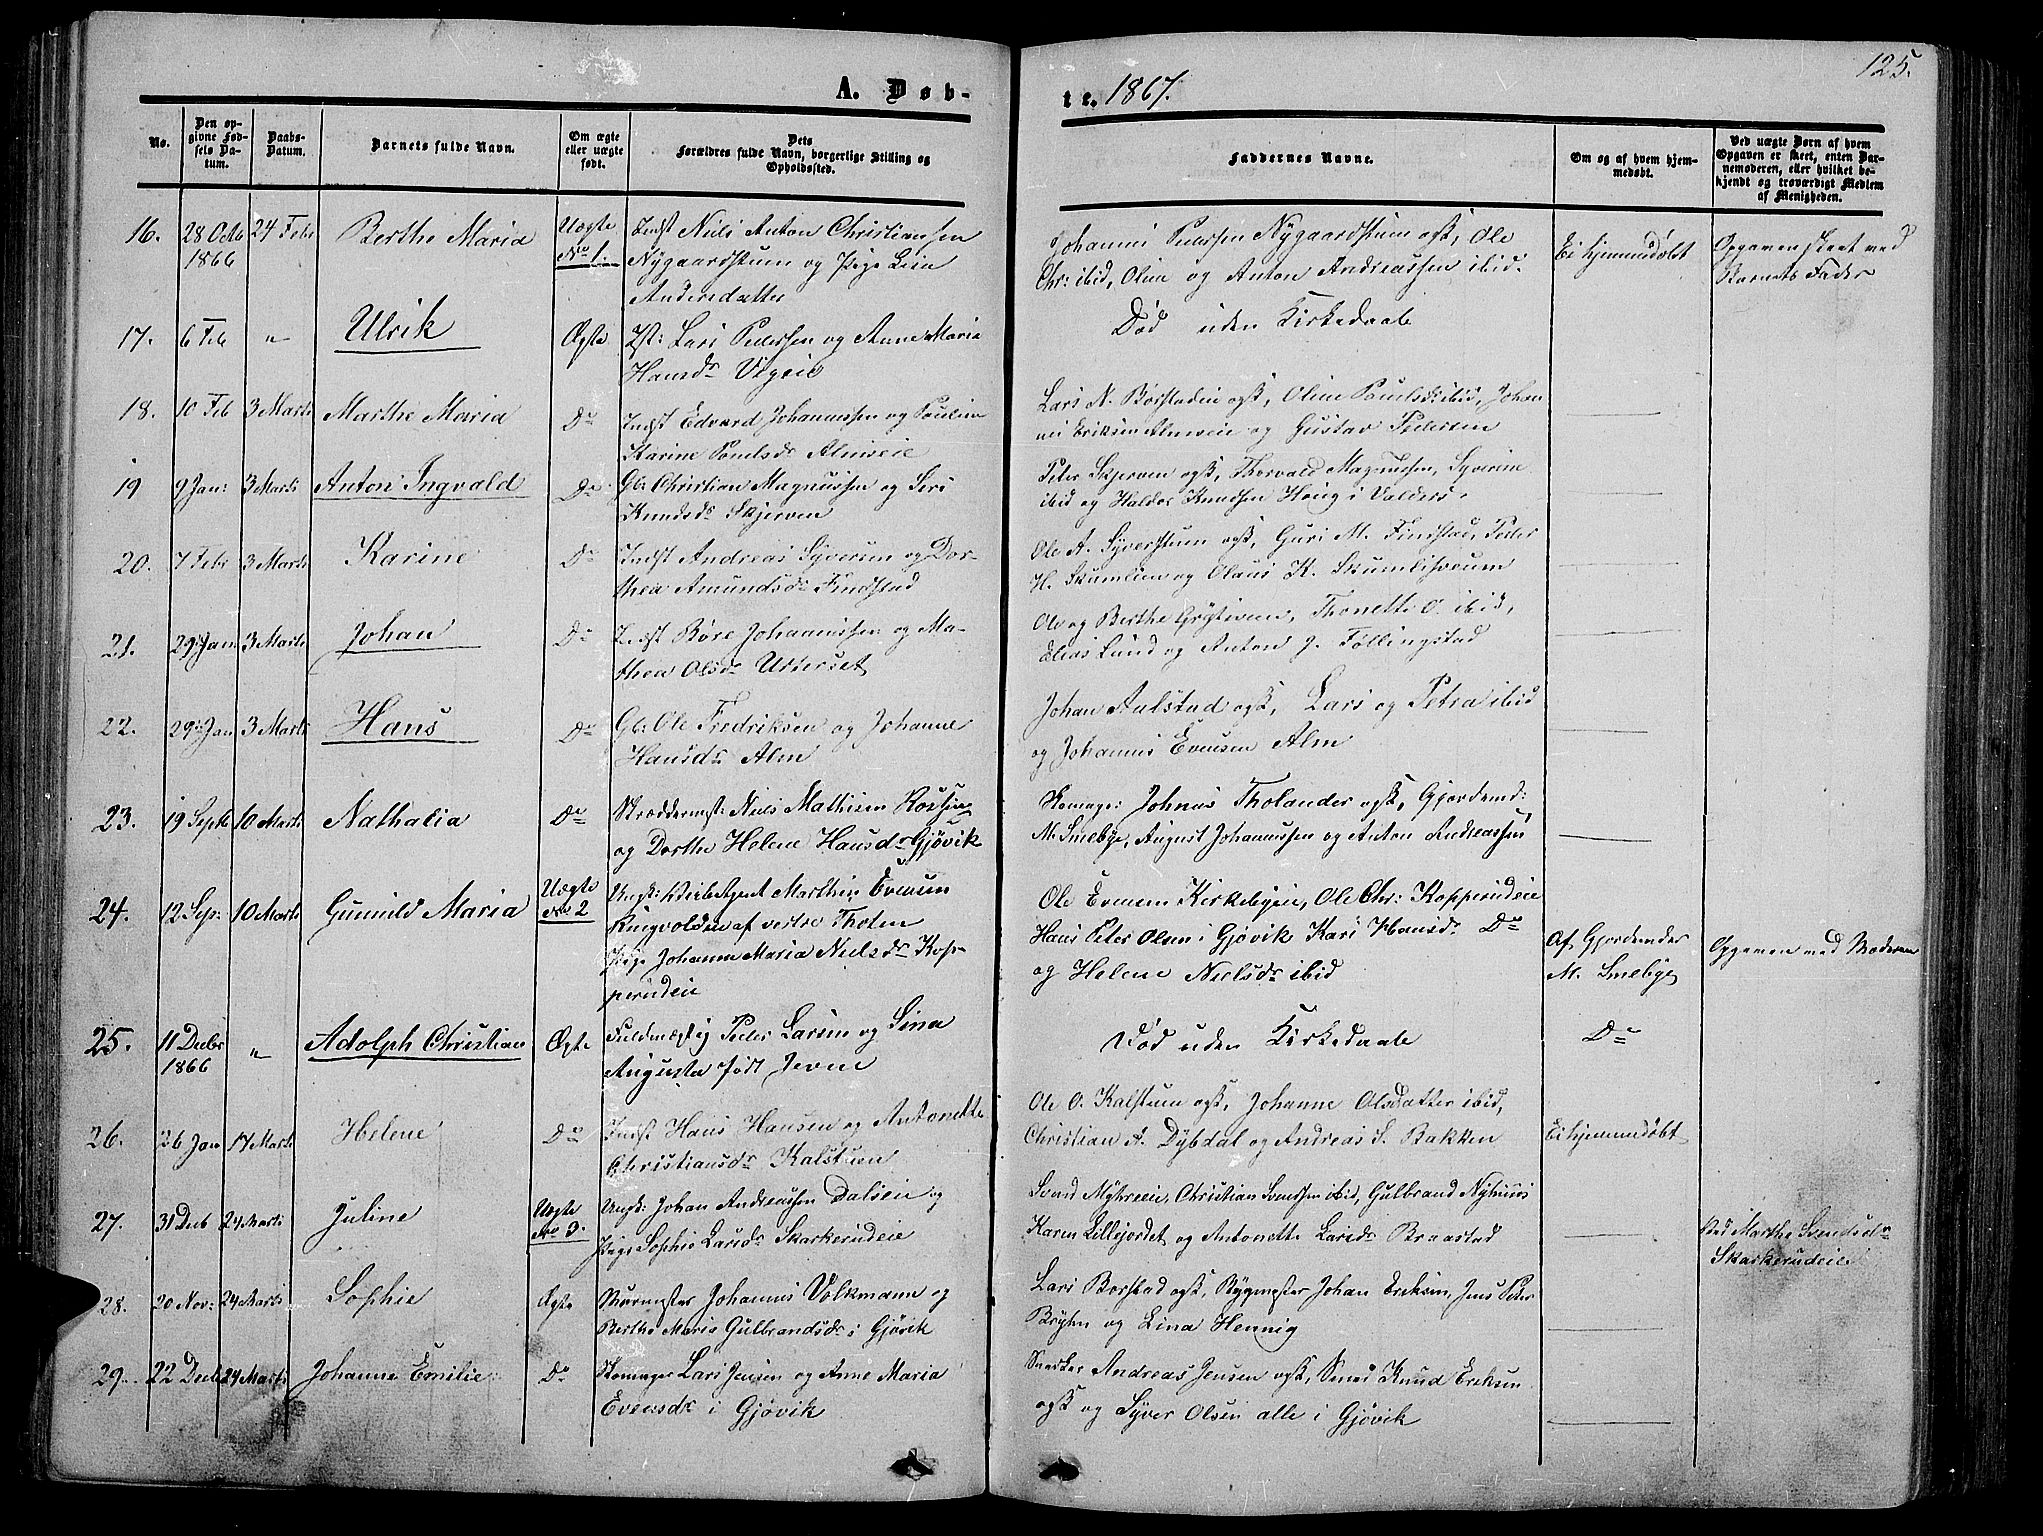 125.
A. Døb-
te. 1867.
No.
Den op-
givne Fød-
sels Da-
tum.
Daabs-
Datum.
Barnets fulde Navn.
Om ægte
eller uægte
født.
Dets
Forældres fulde Navn, borgerlige Stilling og
Opholdssted.
Faddernes Navne.
Om og af hvem hjem-
medøbt.
Ved uægte Børn af hvem
Opgaven er skeet, enten Bar-
nemoderen, eller hvilket be-
kjendt og troværdigt Medlem
af Menigheden.
16. 28 Octb 24 Febr Berthe Maria Uægte Indst Niels Anton Christiansen
1866 No 1. Nygaardstuen og Pige Lisa
Andersdatter
Johannes Pedersen Nygaardstuen ogsk, Ole
Chr: ibid, Oline og Anton Andreassen ibid.
Ei hjemmedøbt
Opgaven skeet ved
Barnets Fader
17. 6 Feb " Ulrik Ægte Lars Pedersen og Anne Maria
Hansdr
Død uden Kirkedaab
18. 10 Feb 3 Marts Marthe Maria Do Indst Edvard Johannessen og Pauline
Karine Paulsdr Almseie
Lars N. Børstadeie ogsk, Oline Paulsdr ibid, Johan
nes Eriksen Almseie og Gustav Pedersen
19 9 Jan: 3 Marts Anton Ingvald Do Gb: Christian Magnussen og Siri
Knudsdr Skjerven
Peter Skjerven ogsk, Thorvald Magnussen, Syverine
ibid og Haldor Knudsen Houg i Valders.
20. 7 Febr 3 Marts Karine Do Indst Andreas Syversen og Dor-
thea Amundsdr Findstad
Ole A. Syverstuen ogsk, Guri M. Findstad, Peder
H. Skumlien og Olaus K. Skumlisveum
21. 29 Jan 3 Marts Johan Do Indst Børe Johannessen og Ma-
thea Olsdr
Ole og Berthe Grytiveien, Thonette O. ibid,
Elias Lund og Anton J. Føllingstad
22. 29 Jan 3 Marts Hans Do Gb: Ole Fredriksen og Johanne
Hansdr Alm
Johan Aalstad ogsk, Lars og Petra ibid
og Johannes Evensen Alm
23. 19 Septb 10 Marts Nathalia Do Skræddermst: Niels Mathisen
og Dorthe Helene Hansdr Gjøvik
Skomager Johnas Tholander ogsk, Gjordemd:
M. Smebye, August Johannessen og Anton Andreassen
24. 12 Sep: 10 Marts Gunnild Maria Uægte Ungk: Martin Evensen
No 2 Ringvolden af vestre Thoten
Pige Johanne Maria Nielsdr Kop-
perudeie
Ole Evensen Kirkebyeie, Ole Chr: Kopperudeie
Hans Peter Olsen i Gjøvik Kari Hansdr Do
og Helene Nielsdr ibid
Af Gjordemoder
M. Smebye
Opgaven ved Moderen
25. 11 Decbr " Adolph Christian Ægte Fuldmægtig Peder Larsen og Lina
1866 Augusta født Jeven
Død uden Kirkedaab
Do
26. 26 Jan 17 Marts Helene Do Indst Hans Hansen og Antonette
Christiansdr Kalstuen
Ole O. Kalstuen ogsk, Johanne Olsdatter ibid,
Christian A. Dybdal og Andreas S. Bakken
Ei hjemmedøbt
27. 31 Decb 24 Marts Juline Uægte Ungk: Johan Andreassen Dalseie og
No 3. Pige Sophie Larsdr Skarkerudeie
Svend Myhreeie, Christian Svendsen ibid, Gulbrand Nyhuus
Karen Lillejordet og Antonette Larsdr Braastad
Ved Marthe Svendsdr
Skarkerudeie
28. 20 Nov: 24 Marts Sophie Ægte Murmester Johannes Volkmann og
Berthe Marie Gulbrandsdr i Gjøvik
Lars Borstad ogsk, Bygmester Johan Eriksen, Jens Peter
Bryhn og Lina Hennig
29. 22 Decb 24 Marts Johanne Emilie Do Skomager Lars Jensen og Anne Maria
Evensdr i Gjøvik
Snedker Andreas Jensen ogsk, Smed Knud Eriksen
ogsk og Syver Olsen alle i Gjøvik